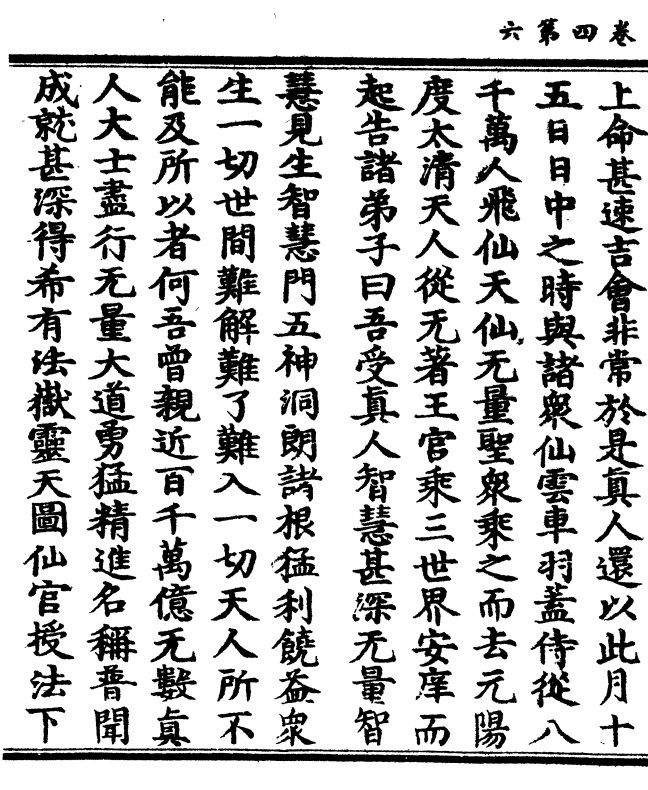 卷四第六
上命甚速吉會非常於是真人還以此月十
五日日中之時與諸衆仙雲車羽蓋侍從八
千萬人飛仙天仙无量聖衆乘之而去元陽
度太清天人從无著王官乘三世界安庠而
起告諸弟子曰吾受真人智慧甚深无量智
慧見生智慧門五神洞朗諸根猛利饒益衆
生一切世間難解難了難入一切天人所不
能及所以者何吾曾親近百千萬億无數真
人大士盡行无量大道勇猛精進名稱普聞
成就甚深得希有法嶽靈天圖仙官授法下